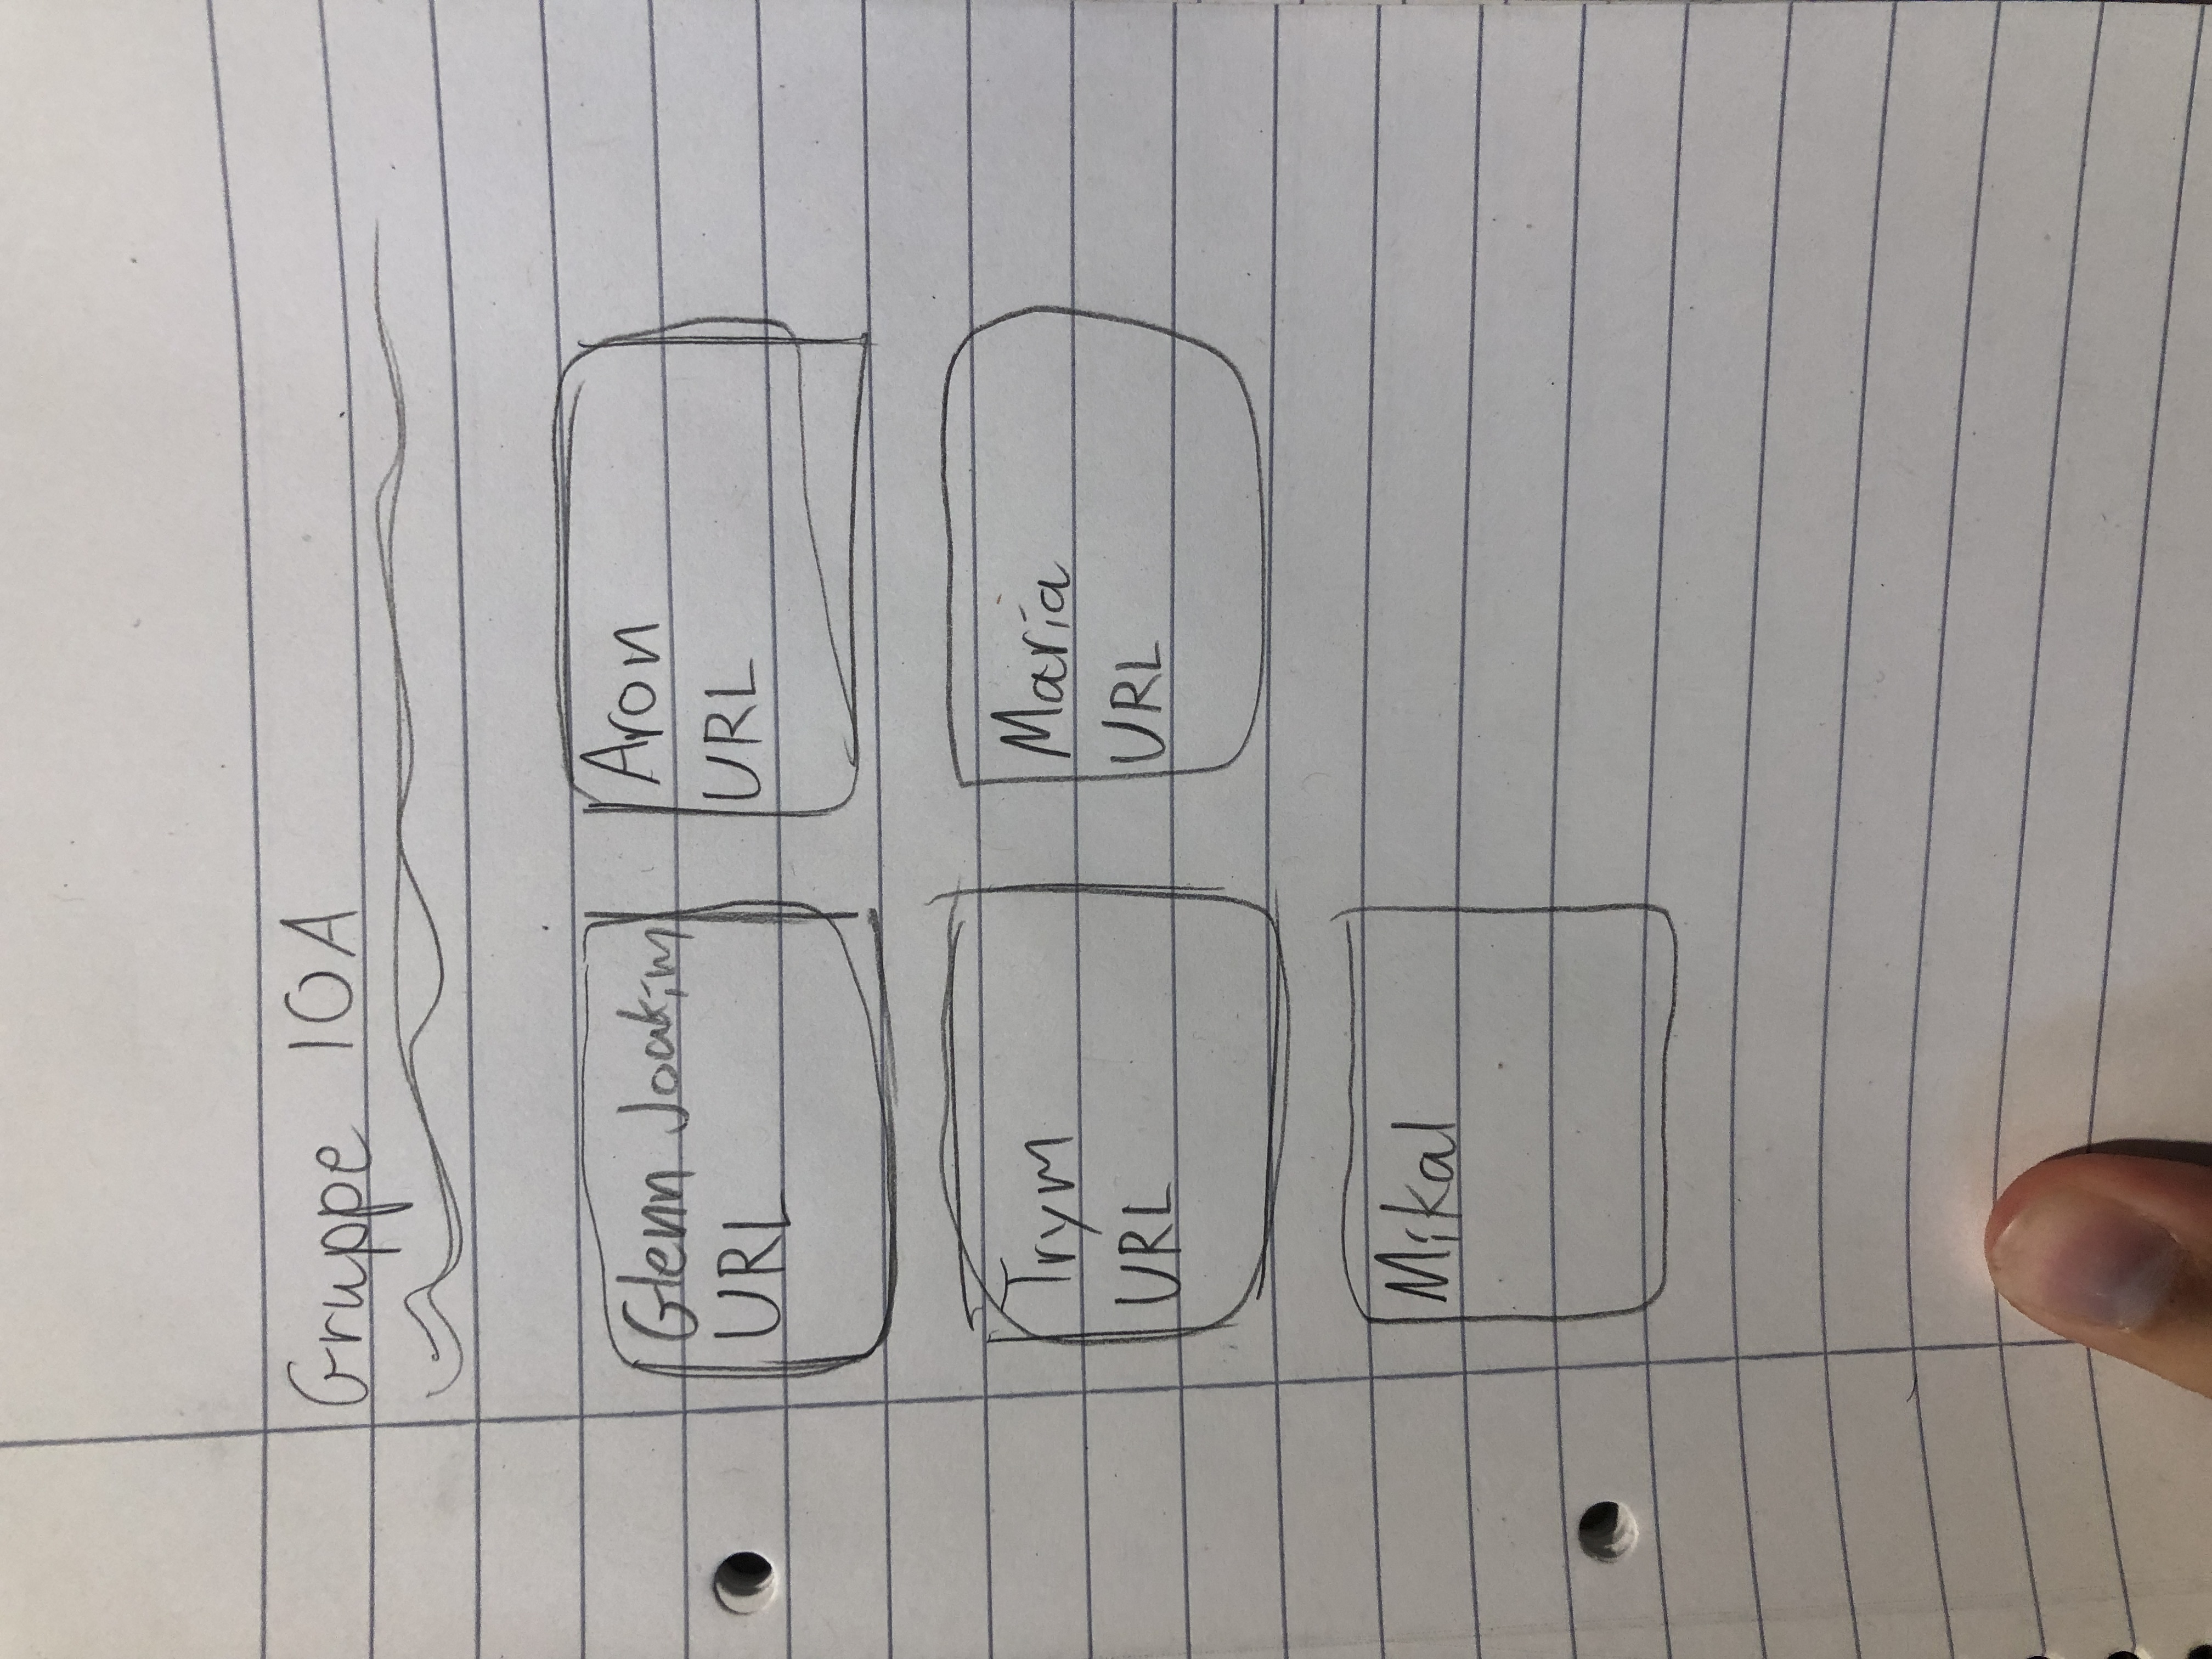 Gruppe 10A
Glenn Joakim
URL
Aron
URL
Trym
URL
Maria
URL
Mikal